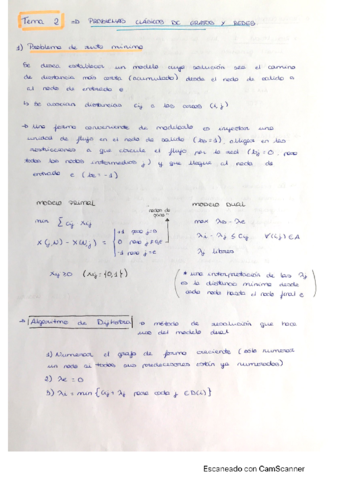 Tema 2 => PROBLEMAS CLÁSICOS DE GRAFOS Y REDES
1) Problema de ruta mínima
Se desea establecer un modelo cuya solución sea el camino
de distancia más corta (acumulada) desde el nodo de salida s
al nodo de entrada e
↳ Se asocian distancias cij a los arcos (i,j)
→ Una forma conveniente de modelarlo es inyectar una
unidad de flujo en el nodo de salida (bs=1) obligar en las
restricciones a que circule el flujo por la red (bj=0 para
todos los nodos intermedios j) y que llegue al nodo de
entrada e (be=-1)
MODELO PRIMAL
MODELO DUAL
min Σ cij xij
max λs-λe
X(j,N) - X(N,j) = { +1 para j=s
0 para j≠s,e
-1 para j=e
λi-λj ≤ cij ∀(i,j)∈A
λj libres
xij≥0 (xij={0,1})
(* una interpretación de las λj
es la distancia mínima desde
cada nodo hasta el nodo final e)
→ Algoritmo de Dijkstra → método de resolución que hace
uso del modelo dual
1) Numerar el grafo de forma creciente (solo numerar
un nodo si todos sus predecesores están ya numerados)
2) λe=0
3) λi = min {cij + λj para cada j ∈ D(i)}
Escaneado con CamScanner